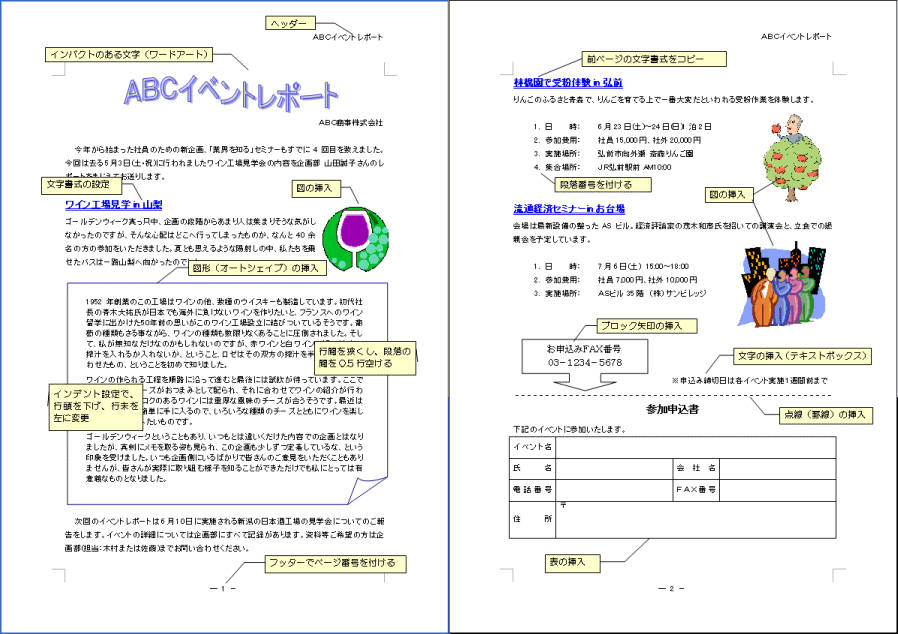 ヘッダー
ABCイベントレポート
インパクトのある文字（ワードアート）
ABCイベントレポート
ABC商事株式会社
今年から始まった社員のための新企画、「業界を知る」セミナーもすでに 4 回目を数えました。
今回は去る5月3日(土・祝)に行われましたワイン工場見学会の内容を企画部 山田誠子さんのレ
ポートをまじえてお送りします。
文字書式の設定
図の挿入
ワイン工場見学 in 山梨
ゴールデンウィーク真っ只中、企画の段階からあまり人は集まりそうな気がし
なかったのですが、そんな心配はどこへ行ってしまったものか、なんと 40 余
名の方の参加をいただきました。夏とも思えるような陽射しの中、私たちを乗
せたバスは一路山梨へ向かったので
図形（オートシェイプ）の挿入
1952 年創業のこの工場はワインの他、数種のウイスキーも製造しています。初代社
長の青木大祐氏が日本でも海外に負けないワインを作りたいと、フランスへのワイン
留学に出かけた50年前の思いがこのワイン工場設立に結びついているそうです。葡
萄の種類もさる事ながら、ワインの種類も数限りなくあることに圧倒されました。そし
て、私が無知なだけなのかもしれないのですが、赤ワインと白ワイン
搾汁を入れるか入れないか、ということ。ロゼはその双方の搾汁を半
わせたもの、ということを初めて知りました。
行間を狭くし、段落の
間を0.5行空ける
ワインの作られる工程を順路に沿って進むと最後には試飲が待っています。ここで
ーズがおつまみとして配られ、それに合わせてワインの紹介が行わ
コクのあるワインには重厚な風味のチーズが合うそうです。最近は
簡単に手に入るので、いろいろな種類のチーズとともにワインを楽し
たいものです。
インデント設定で、
行頭を下げ、行末を
左に変更
ゴールデンウィークということもあり、いつもとは違いくだけた内容での企画とはなり
ましたが、真剣にメモを取る姿も見られ、この企画も少しずつ定着しているな、という
印象を受けました。いつも企画側にいるばかりで皆さんのご意見をいただくこともあり
ませんが、皆さんが実際に取り組む様子を知ることができただけでも私にとっては有
意義なものとなりました。
次回のイベントレポートは6月10日に実施される新潟の日本酒工場の見学会についてのご報
告をします。イベントの詳細については企画部にすべて記録があります。資料等ご希望の方は企
画部(担当：木村または佐藤)までお問い合わせください。
フッターでページ番号を付ける
― 1 ―
ABCイベントレポート
前ページの文字書式をコピー
林檎園で受粉体験 in 弘前
りんごのふるさと青森で、りんごを育てる上で一番大変だといわれる受粉作業を体験します。
1. 日　時： 6月23日(土)～24日(日) 泊2日
2. 参加費用： 社員15,000円、社外20,000円
3. 実施場所： 弘前市向外瀬 斎森りんご園
4. 集合場所： JR弘前駅前 AM10:00
段落番号を付ける
図の挿入
流通経済セミナーin お台場
会場は最新設備の整った AS ビル。経済評論家の茂木和彦氏を招いての講演会と、立食での懇
親会を予定しています。
1. 日　時： 7月6日(土) 15:00～18:00
2. 参加費用： 社員7,000円、社外10,000円
3. 実施場所： ASビル35階（株）サンビレッジ
ブロック矢印の挿入
お申込みFAX番号
03－1234－5678
文字の挿入（テキストボックス）
※申込み締切日は各イベント実施1週間前まで
点線（罫線）の挿入
参加申込書
下記のイベントに参加いたします。
イベント名
氏　名 会 社 名
電話番号 FAX番号
〒
住　所
表の挿入
― 2 ―